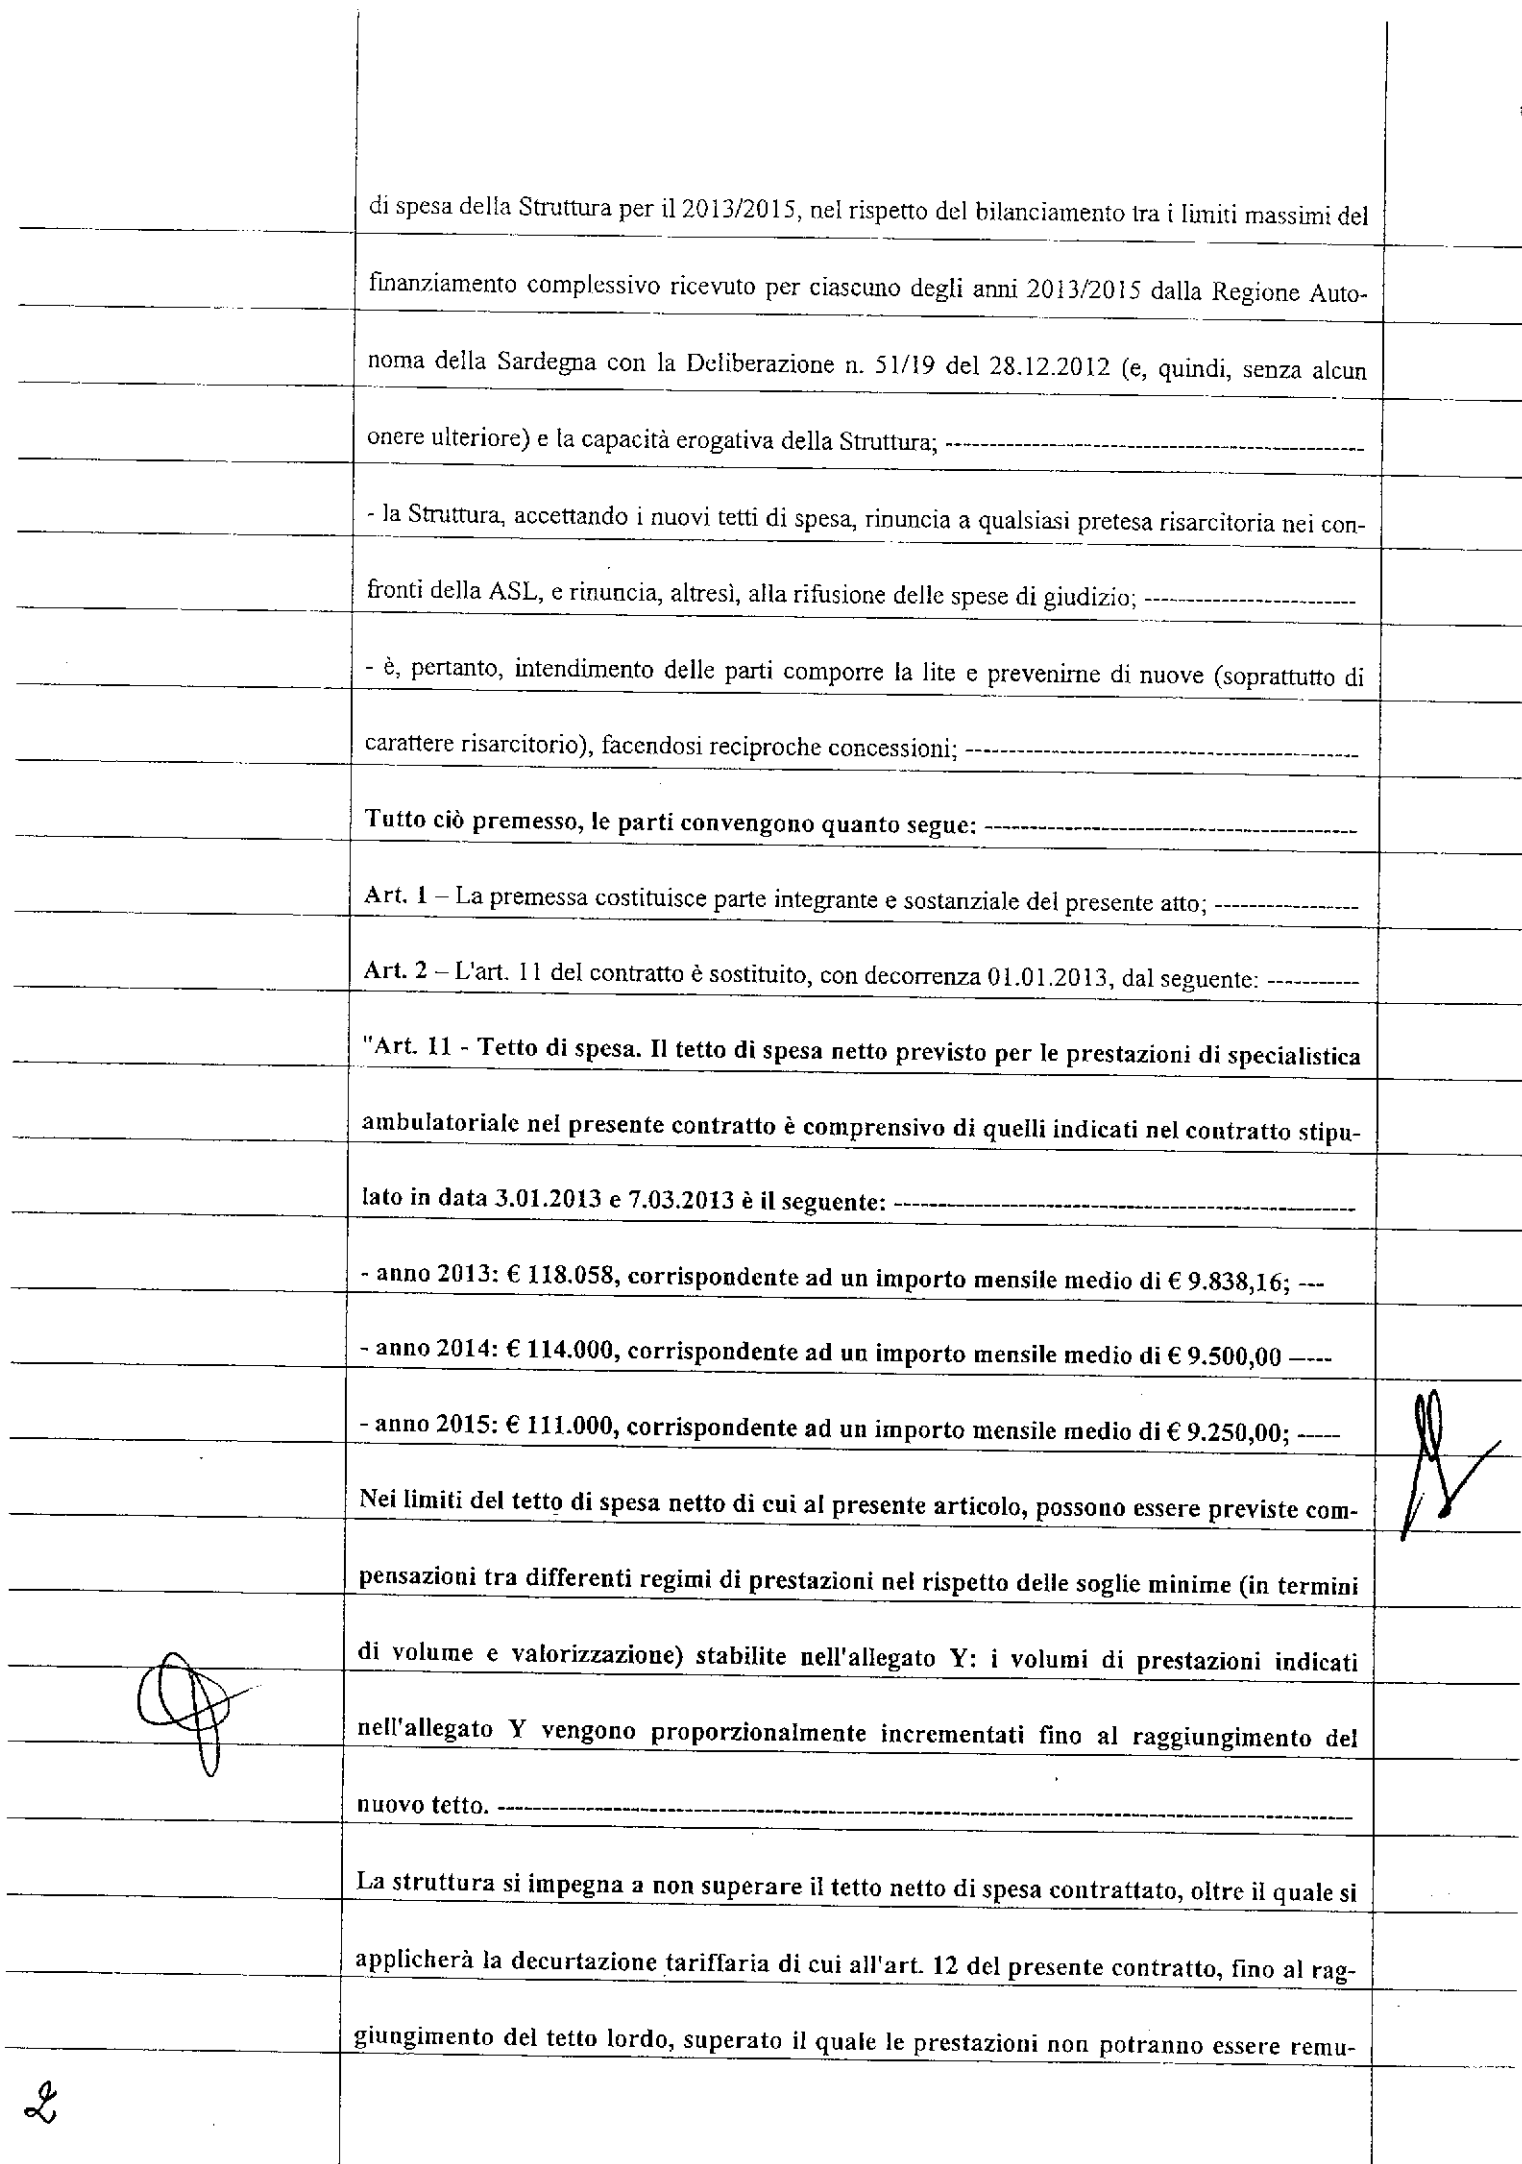 di spesa della Struttura per il 2013/2015, nel rispetto del bilanciamento tra i limiti massimi del
finanziamento complessivo ricevuto per ciascuno degli anni 2013/2015 dalla Regione Auto-
noma della Sardegna con la Deliberazione n. 51/19 del 28.12.2012 (e, quindi, senza alcun
onere ulteriore) e la capacità erogativa della Struttura; ------------------------------------------------
- la Struttura, accettando i nuovi tetti di spesa, rinuncia a qualsiasi pretesa risarcitoria nei con-
fronti della ASL, e rinuncia, altresì, alla rifusione delle spese di giudizio; ------------------------
- è, pertanto, intendimento delle parti comporre la lite e prevenirne di nuove (soprattutto di
carattere risarcitorio), facendosi reciproche concessioni; ---------------------------------------------
Tutto ciò premesso, le parti convengono quanto segue: ------------------------------------------
Art. 1 – La premessa costituisce parte integrante e sostanziale del presente atto; -----------------
Art. 2 – L'art. 11 del contratto è sostituito, con decorrenza 01.01.2013, dal seguente: -----------
"Art. 11 - Tetto di spesa. Il tetto di spesa netto previsto per le prestazioni di specialistica
ambulatoriale nel presente contratto è comprensivo di quelli indicati nel contratto stipu-
lato in data 3.01.2013 e 7.03.2013 è il seguente: ----------------------------------------------------
- anno 2013: € 118.058, corrispondente ad un importo mensile medio di € 9.838,16; ---
- anno 2014: € 114.000, corrispondente ad un importo mensile medio di € 9.500,00 -----
- anno 2015: € 111.000, corrispondente ad un importo mensile medio di € 9.250,00; -----
Nei limiti del tetto di spesa netto di cui al presente articolo, possono essere previste com-
pensazioni tra differenti regimi di prestazioni nel rispetto delle soglie minime (in termini
di volume e valorizzazione) stabilite nell'allegato Y: i volumi di prestazioni indicati
nell'allegato Y vengono proporzionalmente incrementati fino al raggiungimento del
nuovo tetto. ------------------------------------------------------------------------------------------------
La struttura si impegna a non superare il tetto netto di spesa contrattato, oltre il quale si
applicherà la decurtazione tariffaria di cui all'art. 12 del presente contratto, fino al rag-
giungimento del tetto lordo, superato il quale le prestazioni non potranno essere remu-
2